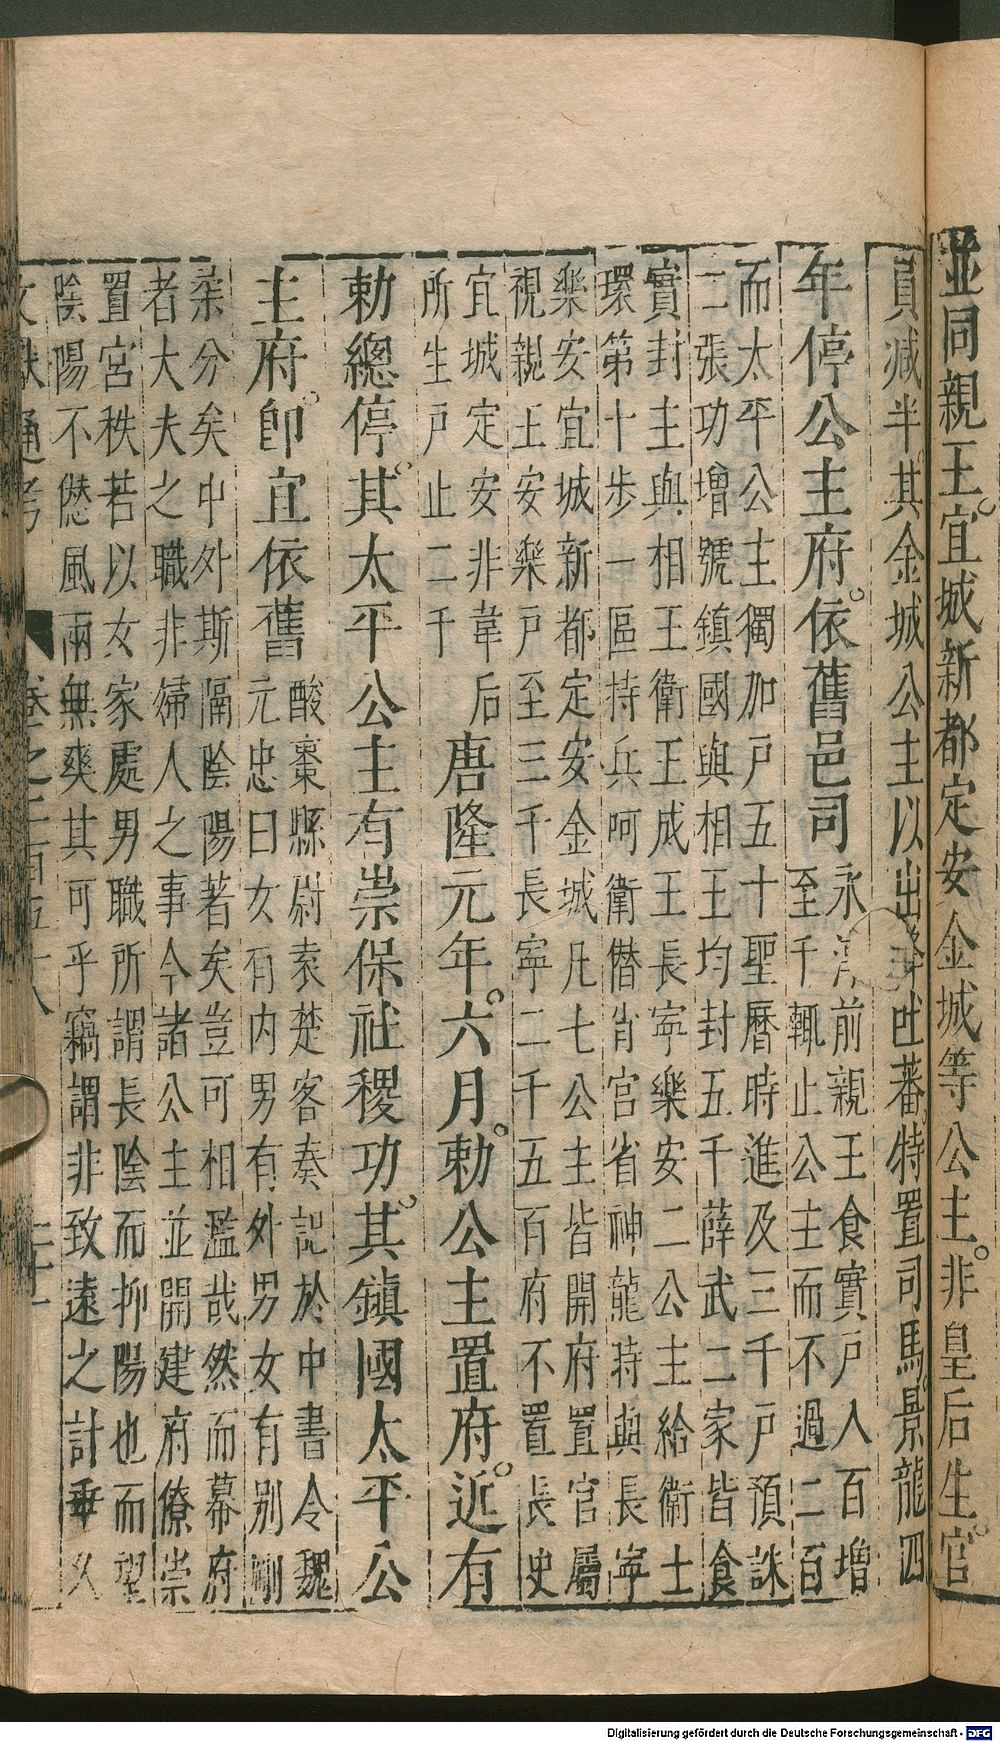 並同親王宜城新都定安金城等公主非皇后生官
員减半其金城公主以出降吐蕃特置司馬景龍四
年停公主府依舊邑司
永淳前親王食實戶八百增
至千輙止公主而不過二百
而太平公主獨加戶五十聖曆時進及三千戶預誅
二張功增號鎮國與相王均封五千薛武二家皆食
實封主與相王衛王成王長寧樂安二公主給衛士
環第十步一區持兵呵衛僣肖宮省神龍時與長寧
樂安宜城新都定安金城凡七公主皆開府置官屬
視親王安樂戶至三千長寧二千五百府不置長史
宜城定安非韋后
所生戶止二千
唐隆元年六月勅公主置府近有
勅總停其太平公主有崇保社稷功其鎮國太平公
主府卽宜依舊
酸棗縣尉袁楚客奏記於中書令魏
元忠曰女有内男有外男女有别剛
柒分矣中外斯隔陰陽著矣豈可相濫哉然而幕府
者大夫之職非婦人之事今諸公主並開建府僚崇
置宮秩若以女家處男職所謂長陰而抑陽也而望
陰陽不僽風雨無爽其可乎竊謂非致遠之計乖久
文獻通考 卷之二百五十八
Digitalisierung gefördert durch die Deutsche Forschungsgemeinschaft - DFG